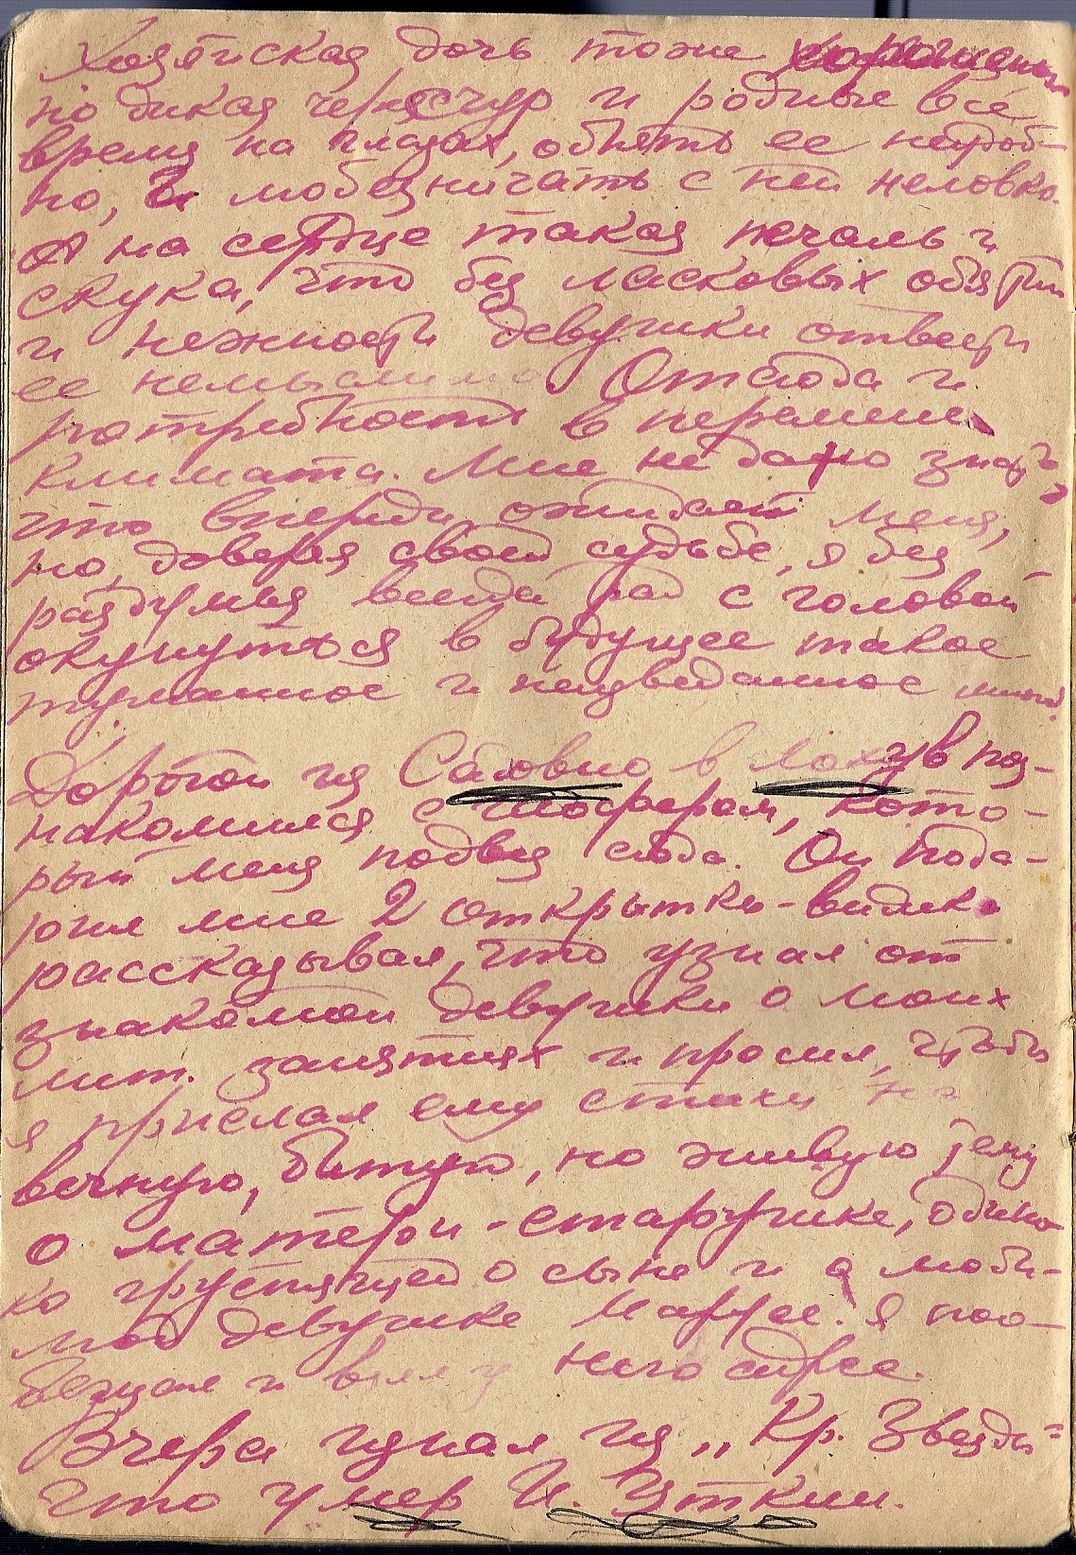 Хозяйская дочь тоже хорошенькая
но дикая чересчур и родные всё
время на глазах, обнять ее неудоб-
но, и любезничать с ней неловко.
А на сердце такая печаль и
скука, что без ласковых объятий
и нежности девушки отвести
ее немыслимо. Отсюда и
потребность в перемене
климата. Мне не дано знать,
что впереди ожидает меня,
но, доверяя своей судьбе, я без
раздумья всегда рад с головой
окунуться в будущее такое
туманное и неизведанное мной.
Дорогой из Садовно в Лохув поз-
накомился с шофером, кото-
рый меня подвез сюда. Он пода-
рил мне 2 открытки-видика
рассказывая, что узнал от
знакомой девушки о моих
лит. занятиях и просил, чтобы
я прислал ему стихи на
вечную, битую, но живую тему
о матери-старушке, одино-
ко грустящей о сыне и о люби-
мой девушке Марусе. Я поо-
бещал и взял у него адрес.
Вчера узнал из „Кр. Звезды"
что умер И. Уткин.